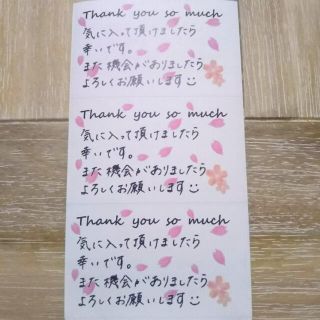 Thank you so much
気に入って頂けましたら
幸いです。
また機会がありましたら
よろしくお願いします
Thank you so much
気に入って頂けましたら
幸いです。
また機会がありましたら
よろしくお願いします
Thank you so much
気に入って頂けましたら
幸いです。
また機会がありましたら
よろしくお願いします